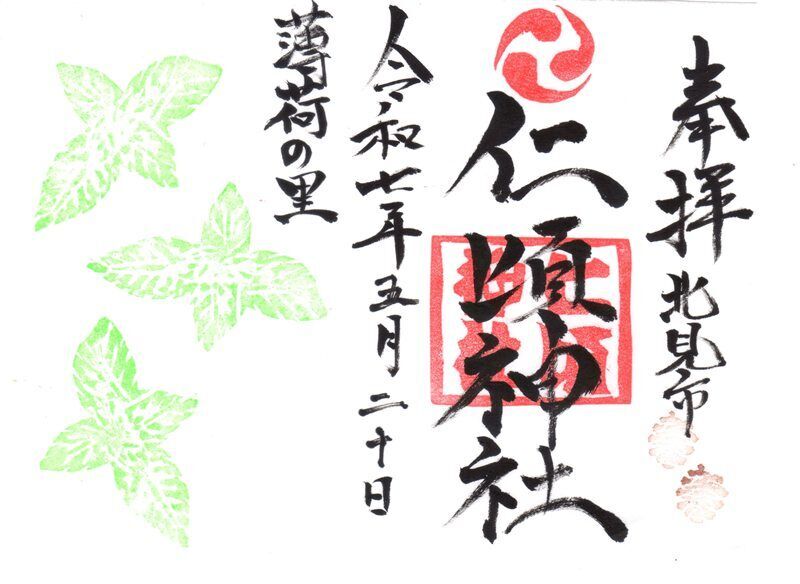 奉拝 北見市
仁頃神社
令和七年五月二十日
薄荷の里